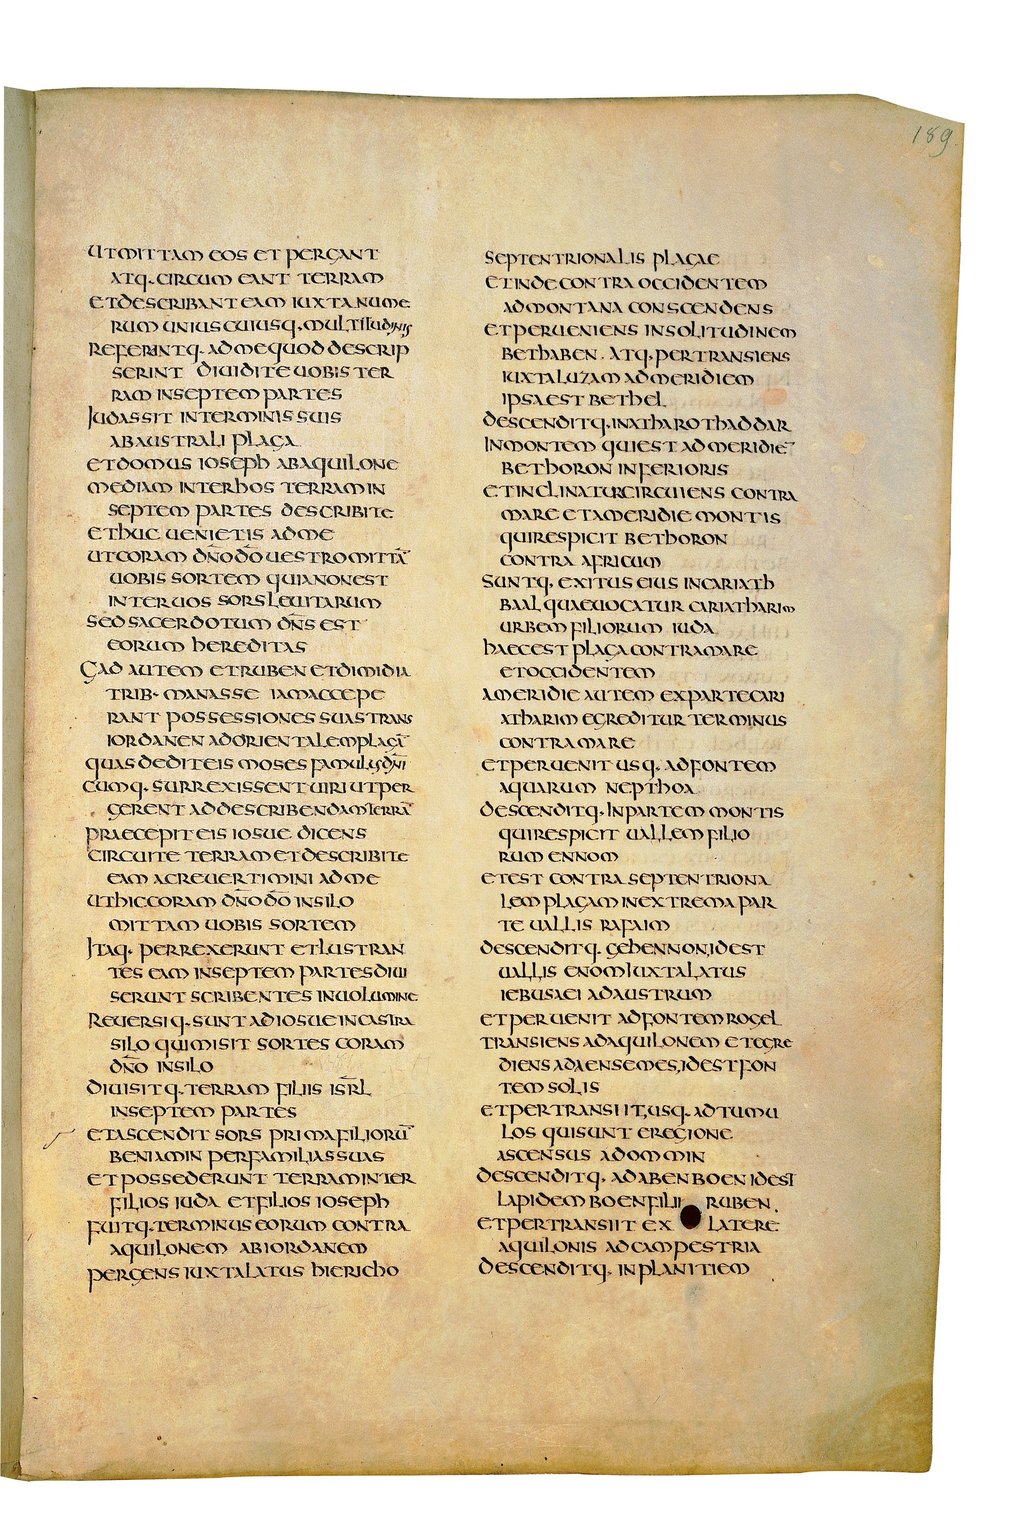 189.
UT MITTAM EOS ET PERGANT
ATQ· CIRCUM EANT TERRAM
ET DESCRIBANT EAM IUXTA NUME
RUM UNIUSCUIUSQ· MULTITUDINIS
REFERANTQ· AD ME QUOD DESCRIP
SERINT DIUIDITE UOBIS TER
RAM IN SEPTEM PARTES
IUDAS SIT IN TERMINIS SUIS
AB AUSTRALI PLAGA
ET DOMUS IOSEPH AB AQUILONE
MEDIAM INTER HOS TERRAM IN
SEPTEM PARTES DESCRIBITE
ET HUC UENIETIS AD ME
UT CORAM DN̄O DŌ UESTRO MITTĀ
UOBIS SORTEM QUIA NON EST
INTER UOS SORS LEUITARUM
SED SACERDOTUM DN̄S EST
EORUM HEREDITAS
GAD AUTEM ET RUBEN ET DIMIDIA
TRIB· MANASSE IAM ACCEPE
RANT POSSESSIONES SUAS TRANS
IORDANEN AD ORIENTALEM PLAGĀ
QUAS DEDIT EIS MOSES FAMULUS DN̄I
CUMQ· SURREXISSENT UIRI UT PER
GERENT AD DESCRIBENDAM TERRĀ
PRAECEPIT EIS IOSUE DICENS
CIRCUITE TERRAM ET DESCRIBITE
EAM AC REUERTIMINI AD ME
UT HIC CORAM DN̄O DŌ IN SILO
MITTAM UOBIS SORTEM
ITAQ· PERREXERUNT ET LUSTRAN
TES EAM IN SEPTEM PARTES DIUI
SERUNT SCRIBENTES IN UOLUMINE
REUERSIQ· SUNT AD IOSUE IN CASTRA
SILO QUI MISIT SORTES CORAM
DN̄O IN SILO
DIUISITQ· TERRAM FILIIS ISR̄L
IN SEPTEM PARTES
ET ASCENDIT SORS PRIMA FILIORŪ
BENIAMIN PER FAMILIAS SUAS
ET POSSEDERUNT TERRAM INTER
FILIOS IUDA ET FILIOS IOSEPH
FUITQ· TERMINUS EORUM CONTRA
AQUILONEM AB IORDANEM
PERGENS IUXTA LATUS HIERICHO
SEPTENTRIONALIS PLAGAE
ET INDE CONTRA OCCIDENTEM
AD MONTANA CONSCENDENS
ET PERUENIENS IN SOLITUDINEM
BETHABEN. ATQ· PERTRANSIENS
IUXTA LUZAM AD MERIDIEM
IPSA EST BETHEL
DESCENDITQ· IN ATHAROTHADDAR
IN MONTEM QUI EST AD MERIDIĒ
BETHORON INFERIORIS
ET INCLINATUR CIRCUIENS CONTRA
MARE ET A MERIDIE MONTIS
QUI RESPICIT BETHORON
CONTRA AFRICUM
SUNTQ· EXITUS EIUS IN CARIATH
BAAL QUAE UOCATUR CARIATHARIM
URBEM FILIORUM IUDA
HAEC EST PLAGA CONTRA MARE
ET OCCIDENTEM
A MERIDIE AUTEM EX PARTE CARI
ATHARIM EGREDITUR TERMINUS
CONTRA MARE
ET PERUENIT USQ· AD FONTEM
AQUARUM NEPTHOA
DESCENDITQ· IN PARTEM MONTIS
QUI RESPICIT UALLEM FILIO
RUM ENNOM
ET EST CONTRA SEPTENTRIONA
LEM PLAGAM IN EXTREMA PAR
TE UALLIS RAFAIM
DESCENDITQ· GEHENNON, ID EST
UALLIS ENOM IUXTA LATUS
IEBUSAEI AD AUSTRUM
ET PERUENIT AD FONTEM ROGEL
TRANSIENS AD AQUILONEM ET EGRE
DIENS AD AENSEMES, ID EST FON
TEM SOLIS
ET PERTRANSIIT, USQ· AD TUMU
LOS QUI SUNT E REGIONE
ASCENSUS ADOMMIN
DESCENDITQ· AD ABENBOEN ID EST
LAPIDEM BOEN FILII RUBEN.
ET PERTRANSIIT EX LATERE
AQUILONIS AD CAMPESTRIA
DESCENDITQ· IN PLANITIEM